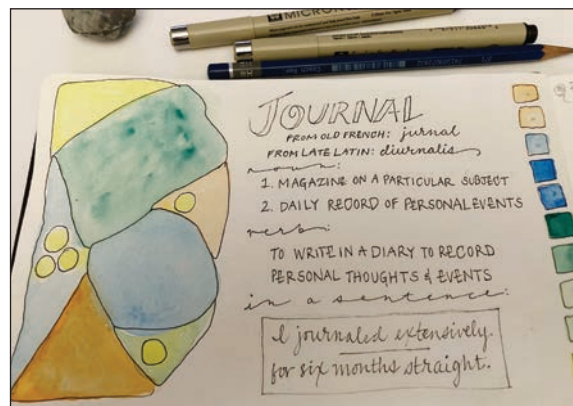 MICRON
JOURNAL
FROM OLD FRENCH: jurnal
FROM LATE LATIN: diurnalis
noun:
1. MAGAZINE ON A PARTICULAR SUBJECT
2. DAILY RECORD OF PERSONAL EVENTS
verb:
TO WRITE IN A DIARY TO RECORD
PERSONAL THOUGHTS & EVENTS
in a sentence:
I journaled extensively.
for six months straight.